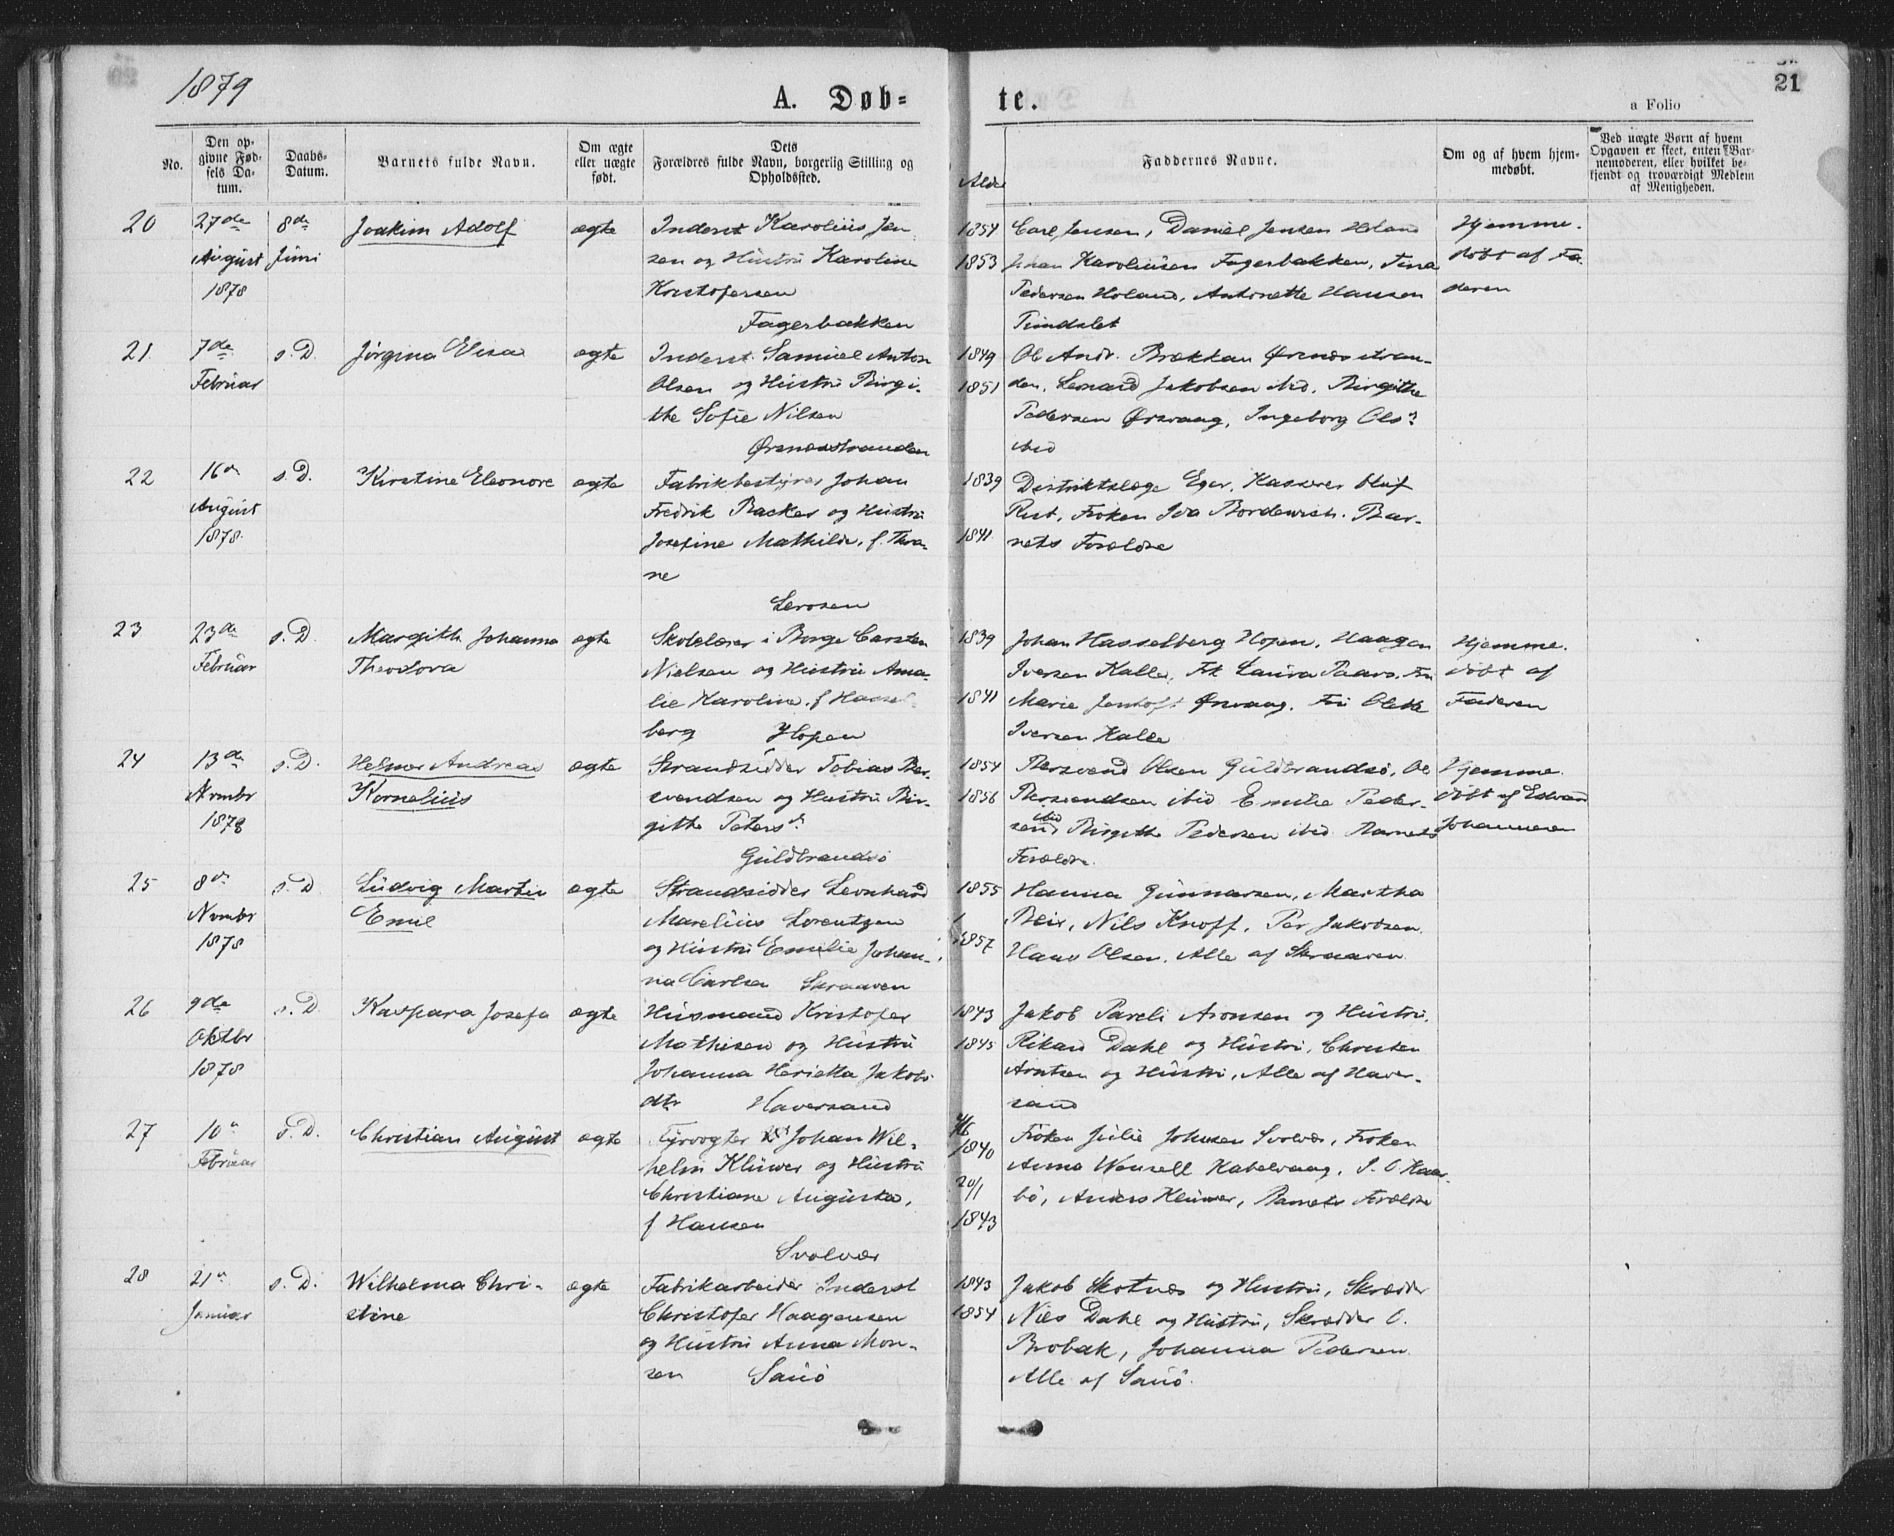 1879
A. Døb-
te.
21
a Folio
No.
Den op-
givne Fød-
sels Da-
tum.
Daabs-
Datum.
Barnets fulde Navn.
Om ægte
eller uægte
født.
Dets
Forældres fulde Navn, borgerlig Stilling og
Opholdssted.
Alder
Faddernes Navne.
Om og af hvem hjem-
medøbt.
Ved uægte Børn af hvem
Opgaven er skeet, enten Bar-
nemoderen, eller hvilket be-
kjendt og troværdigt Medlem
af Menigheden.
20
27de
August
1878
8de
Juni
Joakim Adolf
ægte
Inderst Karolius Jen
sen og Hustru Karoline
Kristofersen
Fagerbakken
1854
1853
Carl Jensen, Daniel Jensen Holand
Johan Karoliusen Fagerbakken, Tina
Pedersen Holand, Antonette Hansen
Hjemme.
døbt af Fa
deren
21
7de
Februar
s. D.
Jørgina Elisa
ægte
Inderst Samuel Anton
Olsen og Hustru Birgi-
the Sofie Nilsen
Ørsnesstranden
1849
1851
Ole Andr. Brækkan Ørsnesstran-
den, Lenard Jakobsen ibid, Birgithe
Pedersen Ørsvaag, Ingeborg Ols
ibid
22
16de
August
1878
s. D.
Kirstine Eleonore
ægte
Fabrikbestyrer Johan
Fredrik Backer og Hustru
Josefine Mathilde, f. Thra-
ne
Lerosen
1839
1841
Distriktslæge Eger, Kasserer Oluf
Rist, Frøken Ida Bordewich. Bar-
nets Forældre
23
23de
Februar
s. D.
Margith Johanna
Theodora
ægte
Skolelærer i Borge Carsten
Nielsen og Hustru Ama-
lie Karoline, f Hassel-
berg Hopen
1839
1841
Johan Hasselberg Hopen, Haagen
Iversen Kalle, Fr. Laura Paavs, Fru
Marie Jentoft Ørsvaag. Fru Olette
Iversen Kalle
Hjemme.
døbt af
Faderen
24
13de
Nvmbr
1878
s. D.
Helmer Andreas
Kornelius
ægte
Strandsidder Tobias Ber-
svendsen og Hustru Bir-
githe Peters
Guldbrandsø
1854
1856
Bersvend Olsen Guldbrandsø, Ole
Bersvendsen ibid Emilie Peder-
sen ibid Birgithe Pedersen ibid Barnets
Forældre.
Hjemme.
døbt af Edvard
Johannesen
25
8de
Nvmbr
1878
s. D.
Ludvig Martin
Emil
ægte
Strandsidder Leonhard
Marelius Lorentzen
og Hustru Emilie Johan-
na Carlsen Skraaven
1855
1857
Hanna Gunnarsen, Martha
Beix, Nils Knoff, Per Jakobsen
Hans Olsen. Alle af Skraaven
26
9de
Oktbr
1878
s. D.
Kaspara Josefa
ægte
Husmand Kristofer
Mathisen og Hustru
Johanna Herietta Jakobs
dtr Haversand
1843
1845
Jakob Pareli Aronsen og Hustru.
Rikard Dahl og Hustru, Christen
Arntsen og Hustru, Alle af Haver-
sand
27
10de
Februar
s. D.
Christian August
ægte
Fyrvogter Johan Wil-
helm Klüwer og Hustru
Christiane Augusta,
f Hansen
Svolvær
1840
20/1
1843
Frøken Julie Johnsen Svolvær, Frøken
Anna Wensell Kabelvaag, J. O Kaar-
bø, Anders Klüwer, Barnets Forældre
28
21de
Januar
s. D.
Wilhelma Chri-
stine
ægte
Fabrikarbeider Inderst
Christofer Haagensen
og Hustru Anna Mon-
sen Sauø
1843
1854
Jakob Skotnes og Hustru, Skrædder
Nils Dahl og Hustru, Skrædder O.
Brobak, Johanna Pedersen
Alle af Sauø.